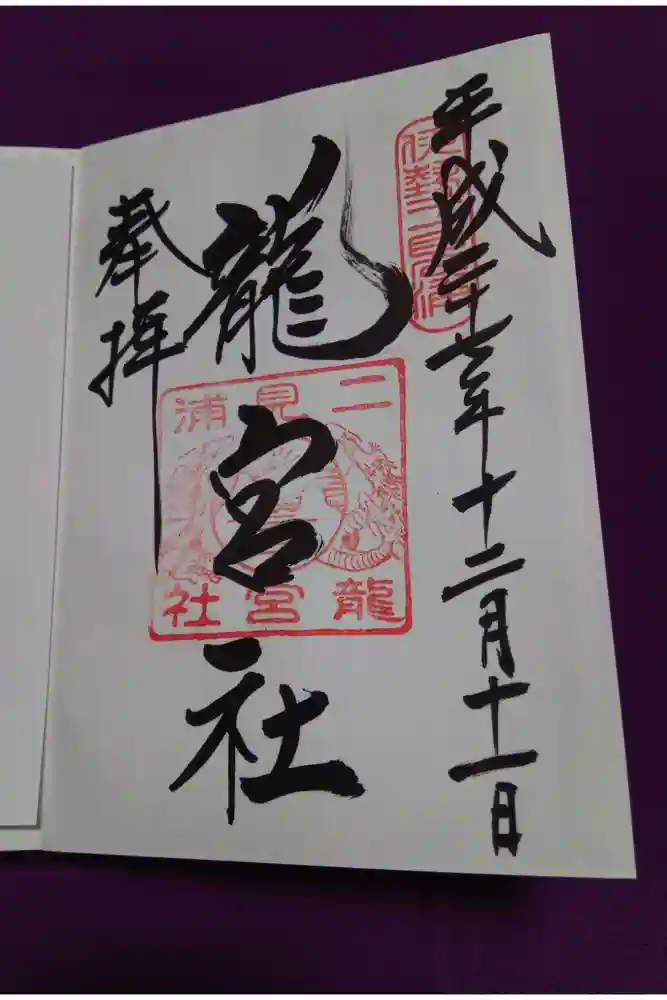 平成二十七年十二月十一日
伊勢二見浦
龍宮社
二見浦
龍宮社
奉拝